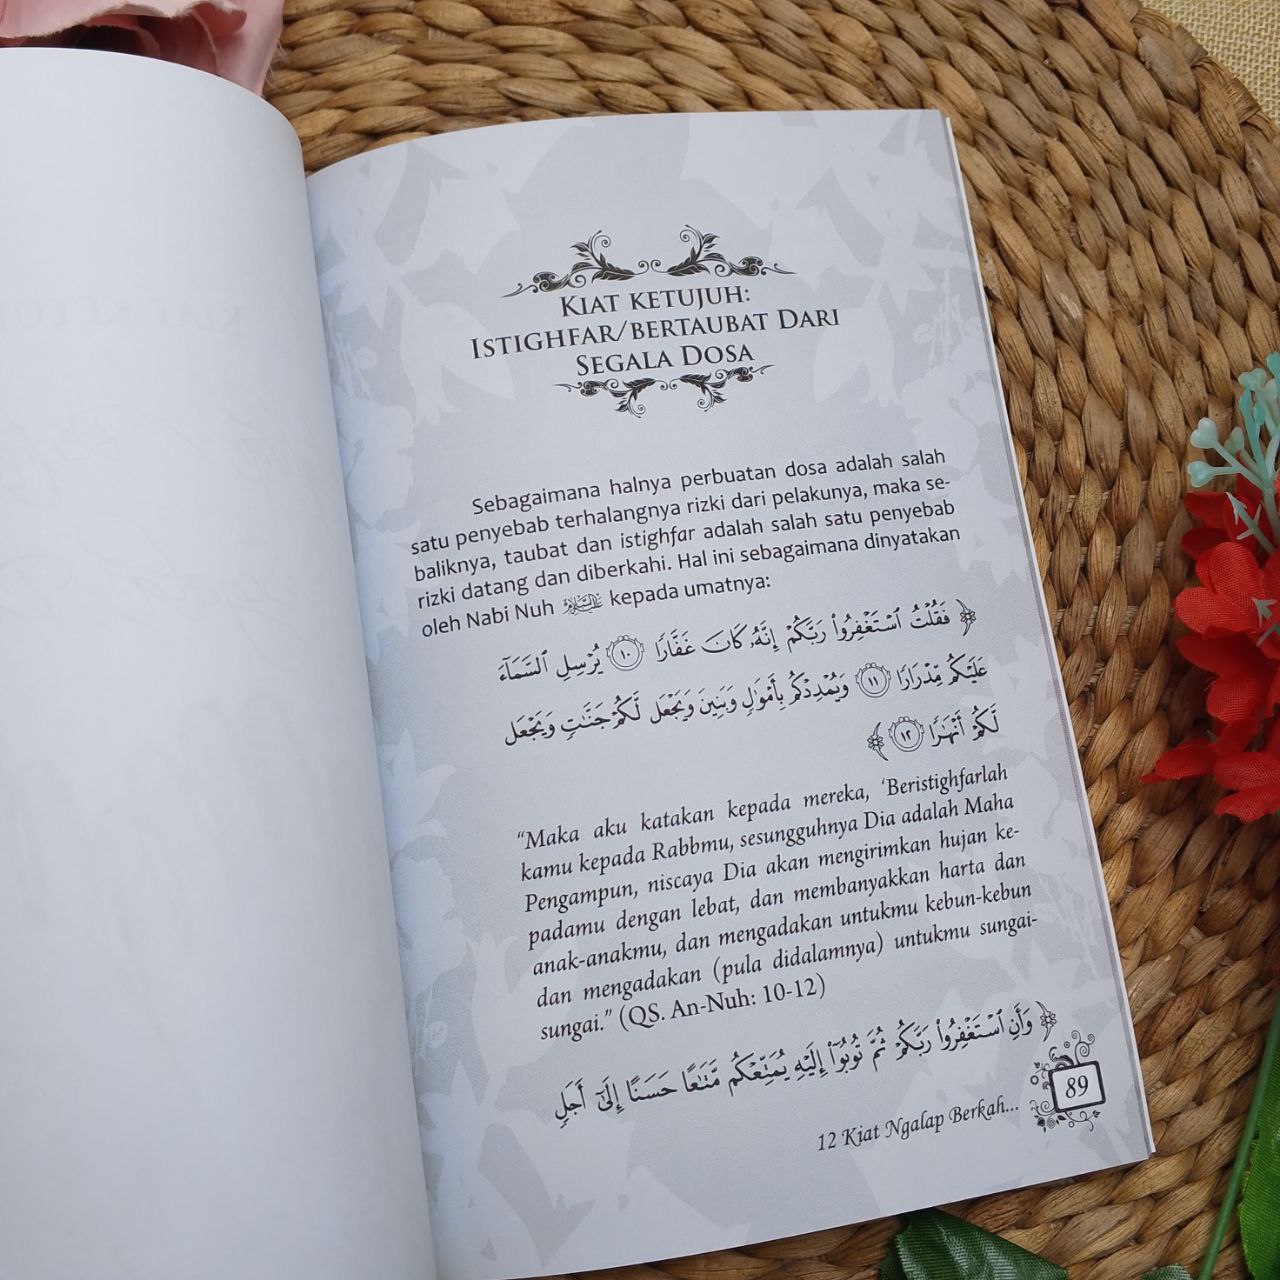 KIAT KETUJUH:
ISTIGHFAR/BERTAUBAT DARI
SEGALA DOSA
Sebagaimana halnya perbuatan dosa adalah salah
satu penyebab terhalangnya rizki dari pelakunya, maka se-
baliknya, taubat dan istighfar adalah salah satu penyebab
rizki datang dan diberkahi. Hal ini sebagaimana dinyatakan
oleh Nabi Nuh عليه السلام kepada umatnya:
﴿ فَقُلْتُ ٱسْتَغْفِرُوا۟ رَبَّكُمْ إِنَّهُۥ كَانَ غَفَّارًا ١٠ يُرْسِلِ ٱلسَّمَآءَ
عَلَيْكُم مِّدْرَارًا ١١ وَيُمْدِدْكُم بِأَمْوَٰلٍ وَبَنِينَ وَيَجْعَل لَّكُمْ جَنَّـٰتٍ وَيَجْعَل
لَّكُمْ أَنْهَـٰرًا ١٢ ﴾
“Maka aku katakan kepada mereka, ‘Beristighfarlah
kamu kepada Rabbmu, sesungguhnya Dia adalah Maha
Pengampun, niscaya Dia akan mengirimkan hujan ke-
padamu dengan lebat, dan membanyakkan harta dan
anak-anakmu, dan mengadakan untukmu kebun-kebun
dan mengadakan (pula didalamnya) untukmu sungai-
sungai.” (QS. An-Nuh: 10-12)
﴿ وَأَنِ ٱسْتَغْفِرُوا۟ رَبَّكُمْ ثُمَّ تُوبُوٓا۟ إِلَيْهِ يُمَتِّعْكُم مَّتَـٰعًا حَسَنًا إِلَىٰٓ أَجَلٍ
12 Kiat Ngalap Berkah...
89